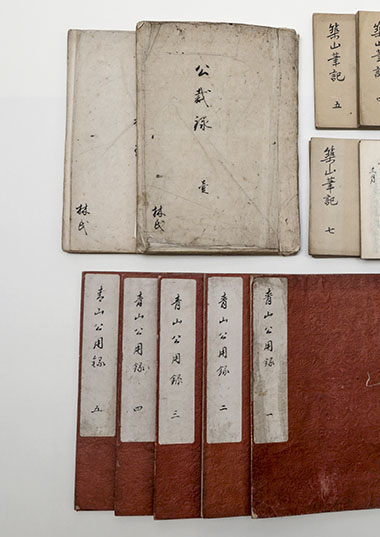 公裁録
壹
林氏
林氏
築山筆記
五
築山筆記
七
青山公用録
五
青山公用録
四
青山公用録
三
青山公用録
二
青山公用録
一